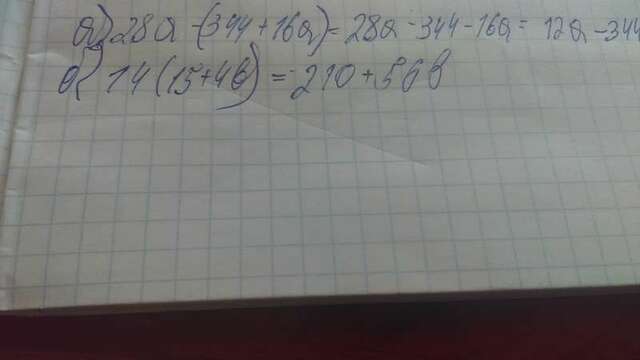 а) 28а - (344 + 16а) = 28а - 344 - 16а = 12а - 344
б) 14 (15 + 4в) = 210 + 56в